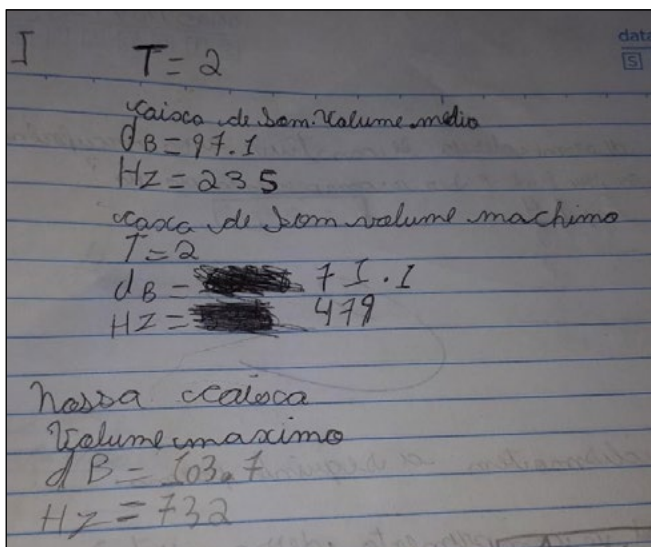 I
T = 2
data
S
caixa de som. Volume médio
dB = 97.1
Hz = 235
caxca de som volume machimo
T = 2
dB = 71.1
Hz = 479
nossa caixca
Volume maximo
dB = 103.7
Hz = 732